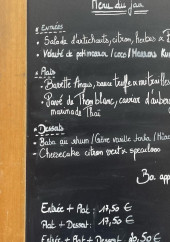 Menu du Jour
* Entrées
• Salade d'artichauts, citron, herbes x
• Velouté de potimarron / coco / Marrons
* Plats
• Bavette Angus, sauce truffe x
• Pavé de Thon blanc, caviar d'auber
marinade Thaï
* Desserts
• Baba au rhum / Poire vanille
• Cheesecake citron vert x speculoos
Bon app
Entrée + Plat : 17,50 €
Plat + Dessert : 17,50 €
Entrée + Plat + Dessert : 20,50 €